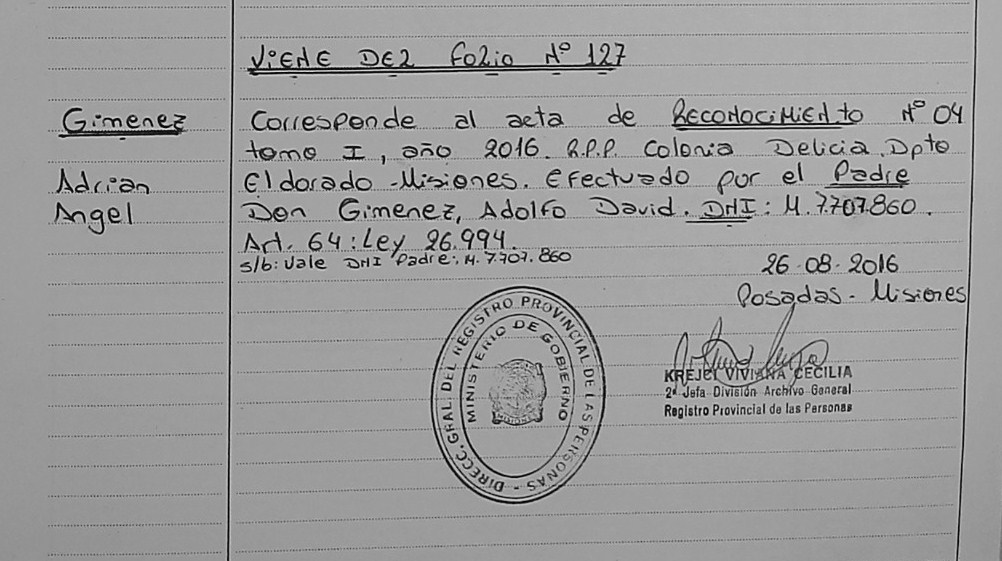 VIENE DEL FOLIO Nº 127
Gimenez
Adrian
Angel
Corresponde al acta de Reconocimiento Nº 04
tomo I, año 2016. R.P.P. Colonia Delicia. Dpto
Eldorado - Misiones. Efectuado por el Padre
Don Gimenez, Adolfo David. DNI: M. 7.707.860.
Art. 64: Ley 26.994.
s/b: Vale DNI Padre: M. 7.707.860
26-08-2016
Posadas - Misiones
KREJCI VIVIANA CECILIA
2ª Jefa División Archivo General
Registro Provincial de las Personas
DIRECC. GRAL. DEL REGISTRO PROVINCIAL DE LAS PERSONAS -
MINISTERIO DE GOBIERNO